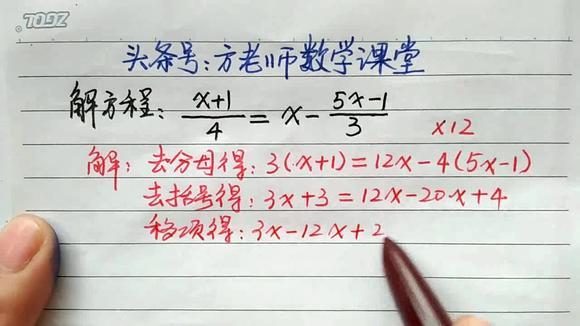 TQ9Z
头条号:方老师数学课堂
解方程: (x+1)/4 = x - (5x-1)/3
x12
解: 去分母得: 3(x+1)=12x-4(5x-1)
去括号得: 3x+3=12x-20x+4
移项得: 3x-12x+2